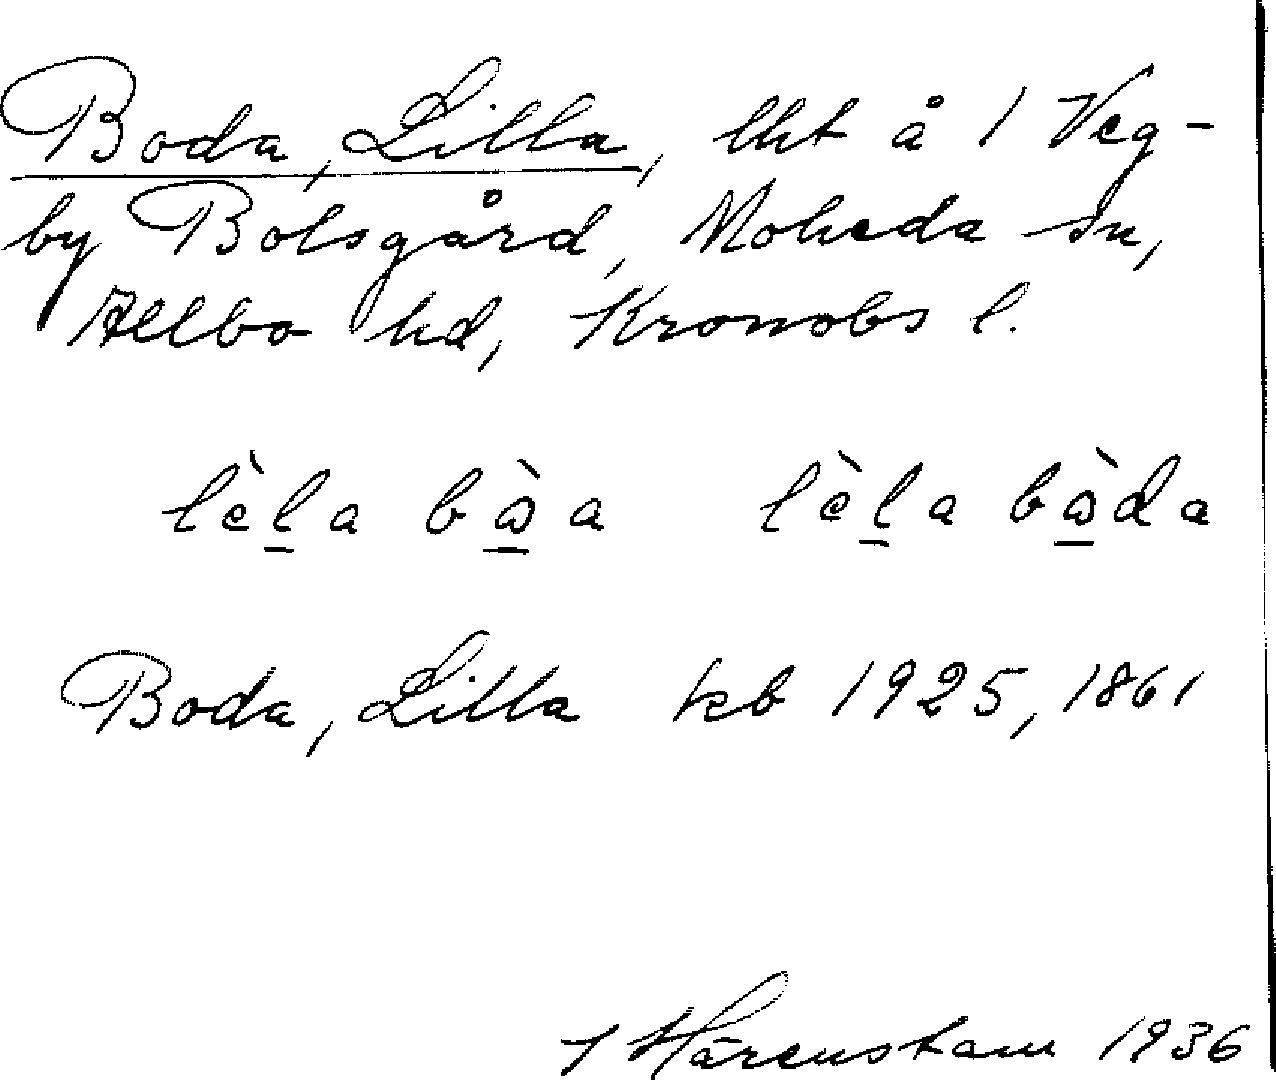 Boda, Lilla, lht å 1 Veg-
by Bolsgård, Moheda sn,
Allbo hd, Kronobs l.
lèl̲a bὼ̲a lèl̲a bὼ̲da
Boda, Lilla kb 1925, 1861
Härenstam 1936